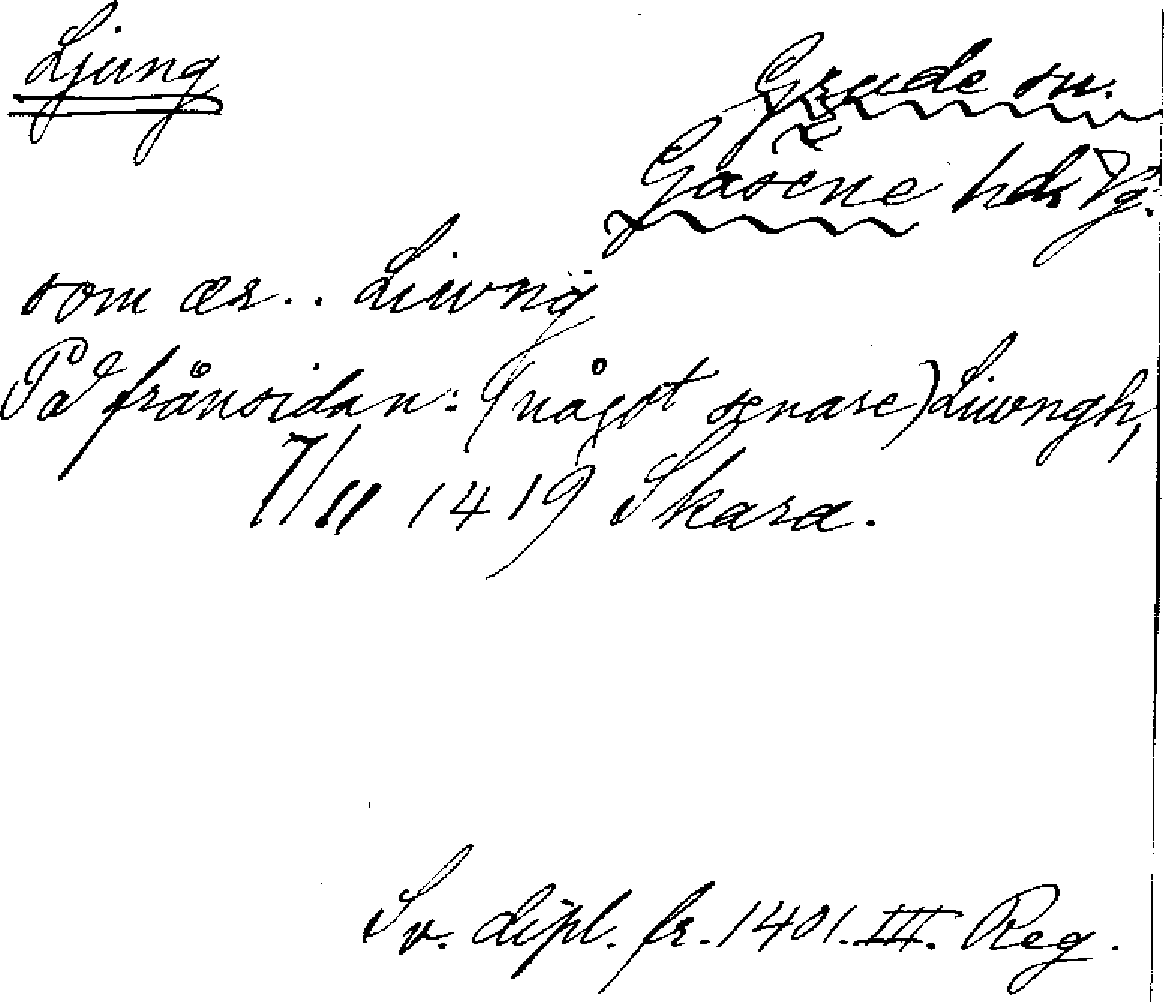 Ljung
Grude sn.
Gäsene hd, Vg.
som ær.. Liwng
På frånsidan: (något senare) Liwngh,
7/11 1419 Skara.
Sv. dipl. fr. 1401. III. Reg.